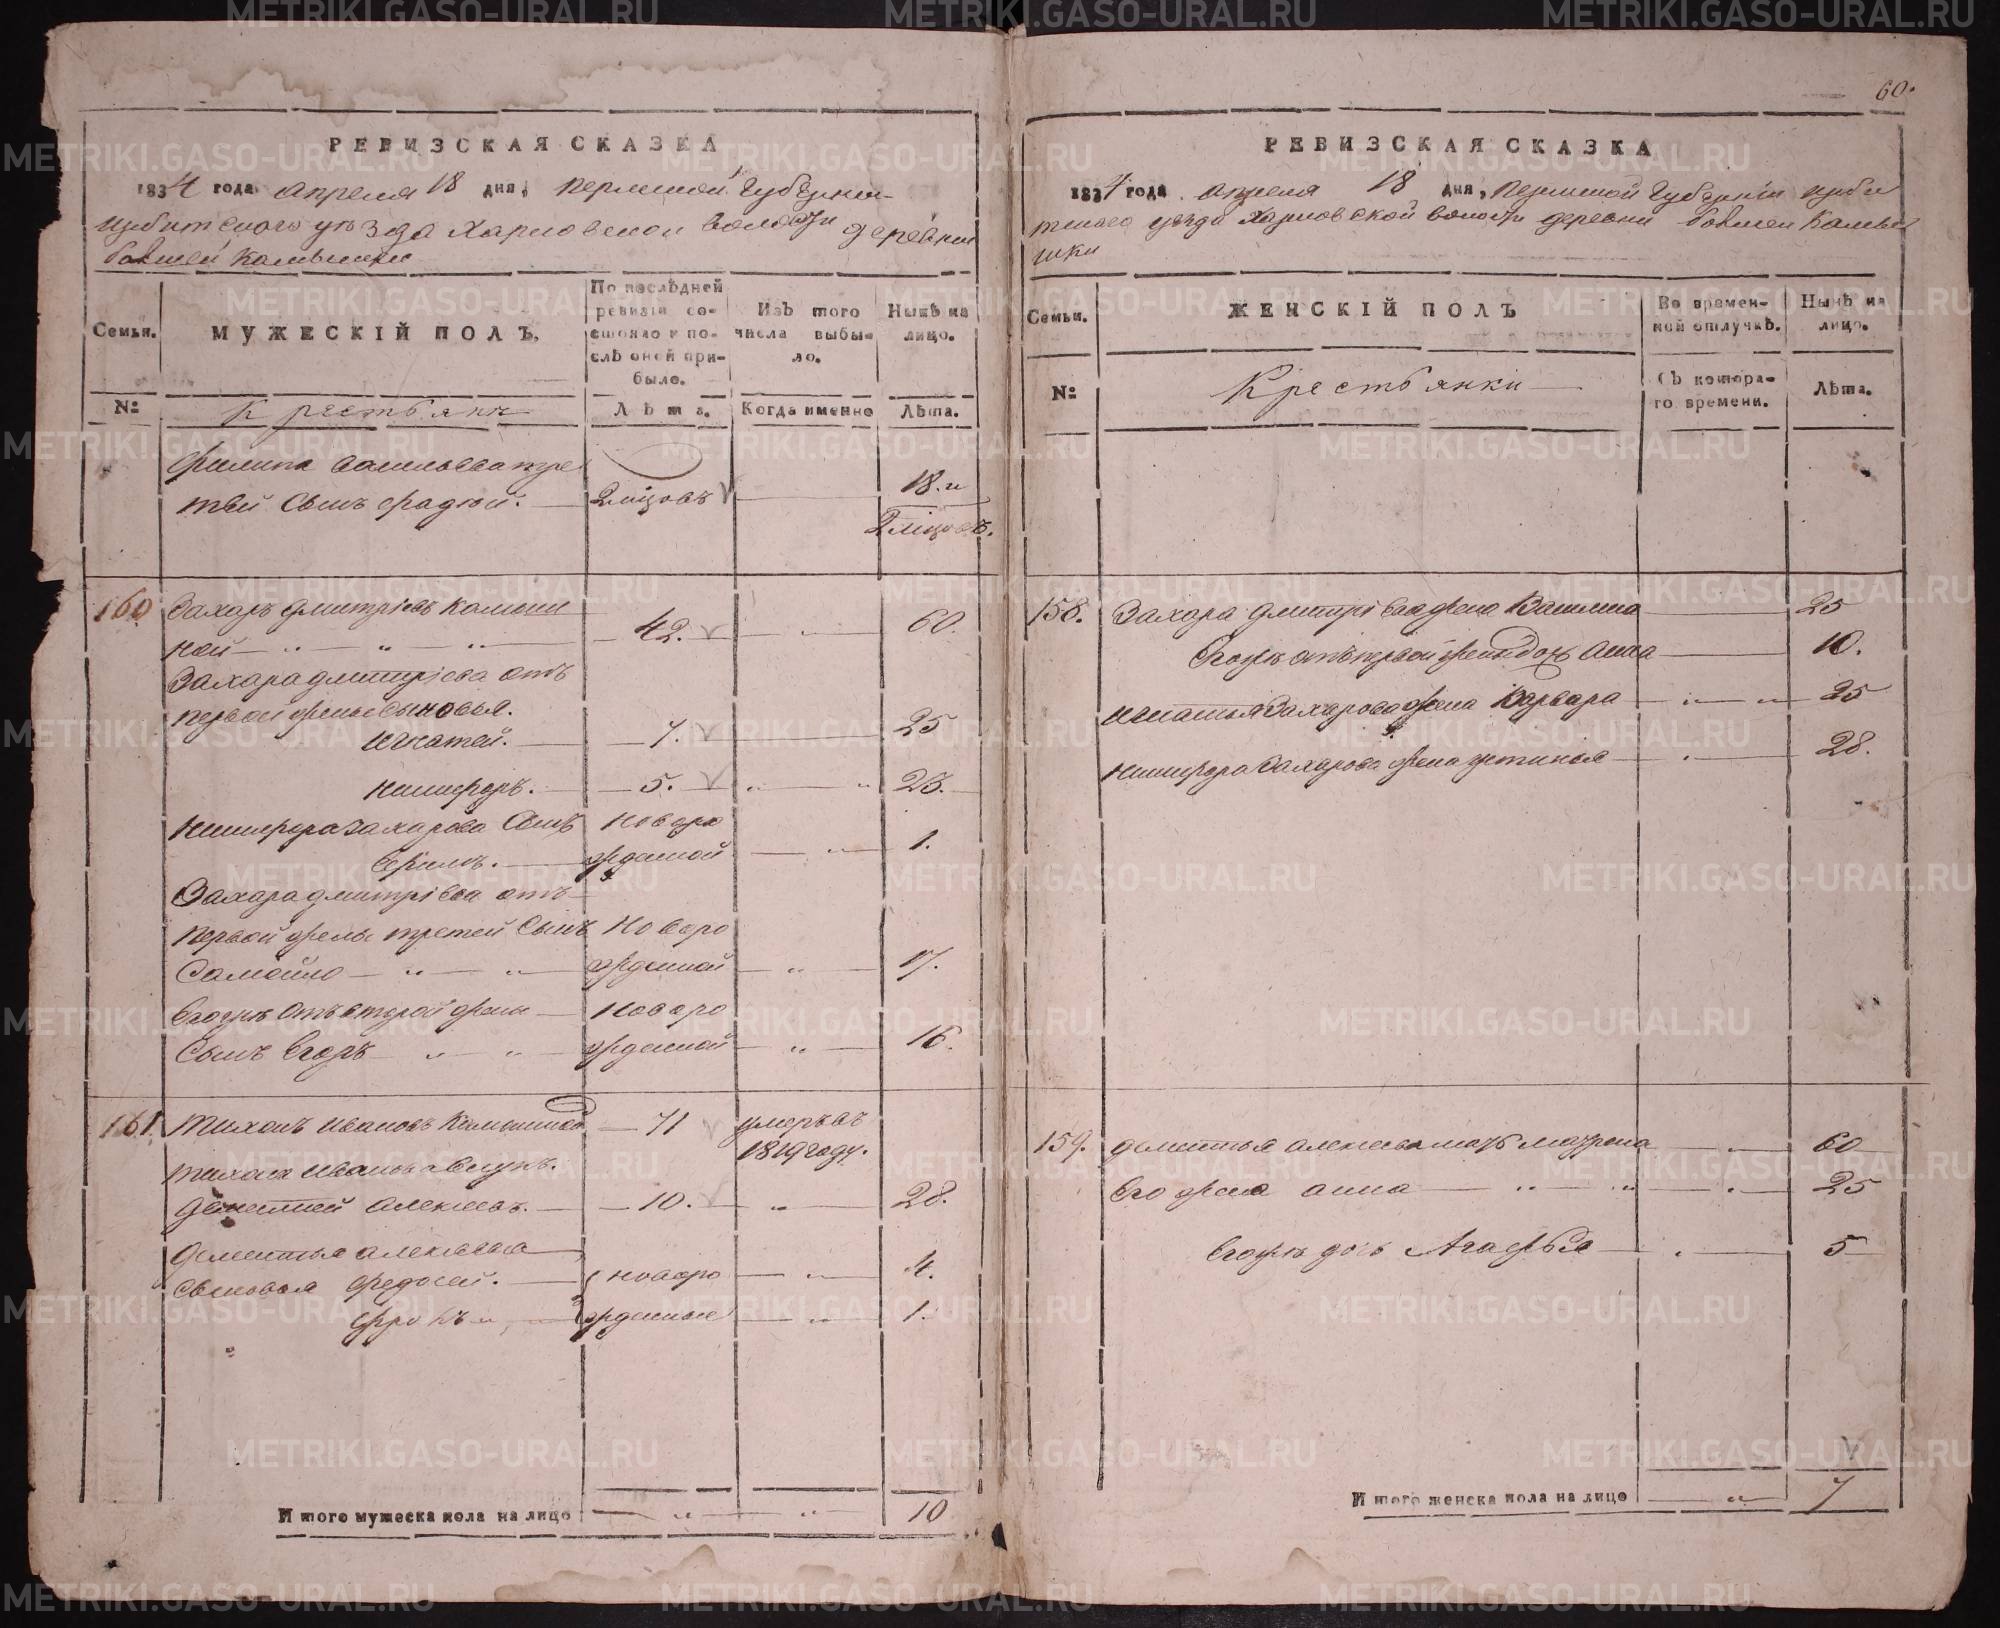 60.
РЕВИЗСКАЯ СКАЗКА
1834 года апреля 18 дня, пермской губернии
ирбитского уѣзда Харловской волости деревни
болшей Камышки
Семьи.
МУЖЕСКІЙ ПОЛЪ,
По послѣдней ревизіи состояло и послѣ оней прибыло.
Изъ того числа выбыло.
Нынѣ на лицо.
№
Крестьянъ
Лѣта.
Когда именно
Лѣта.
Филипа Васильева тре
тей Сынъ Фадей. 2 мѣсецовъ 18. и
2 мѣсецовъ.
160 Захаръ Дмитріевъ Камыш
ной 42. 60.
Захара дмитріева отъ
первой жены Сыновья.
Игнатей. 7. 25
Никифоръ. 5. 23.
Никифора Захарова Сынъ новоро
Ефимъ. жденной 1.
Захара дмитріева отъ
первой жены третей Сынъ Новоро
Самойло жденной 17.
Егожъ отъ второй жены Новоро
Сынъ Егоръ жденной 16.
161 Тихонъ Ивановъ 71 умеръ въ
1819 году.
Тихона Иванова внукъ.
Дементей Алексеевъ. 10. 28.
Дементья алексеева
Сыновья Федосей. новоро 4.
жденные 1.
Итого мужеска пола на лицо 10
РЕВИЗСКАЯ СКАЗКА
1834 года апреля 18 дня, Пермской Губерніи ирби
тского уѣзда Харловской волости деревни болшей Камы
шки
Семьи.
ЖЕНСКІЙ ПОЛЪ
Во временной отлучкѣ.
Нынѣ на лицо.
№
Крестьянки
Съ котораго времени.
Лѣта.
158. Захара Дмитріева жена 25
Егожъ отъ первой жены дочь Анна 10.
Игнатья Захарова жена Варвара 25
Никифора Захарова жена устинья 28.
159. дементья алексеева мать матрена 60
Его жена анна 25
Егожъ дочь Агафья 5
Итого женска пола на лицо 7
METRIKI.GASO-URAL.RU